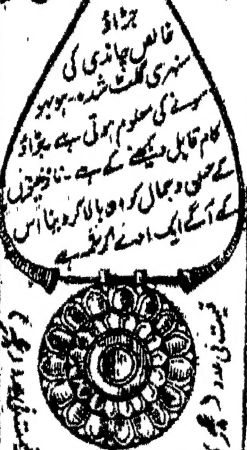 جڑاؤ
خالص چاندی کی
سنہری گلٹ شدہ ہوبہو
سونے کی معلوم ہوتی ہے جڑاؤ
کام قابل دیکھنے کے ہے
کے حسن و جمال کو دوبالا کر دینا اس
کے آگے ایک ادنے کرشمہ ہے
قیمت فی عدد